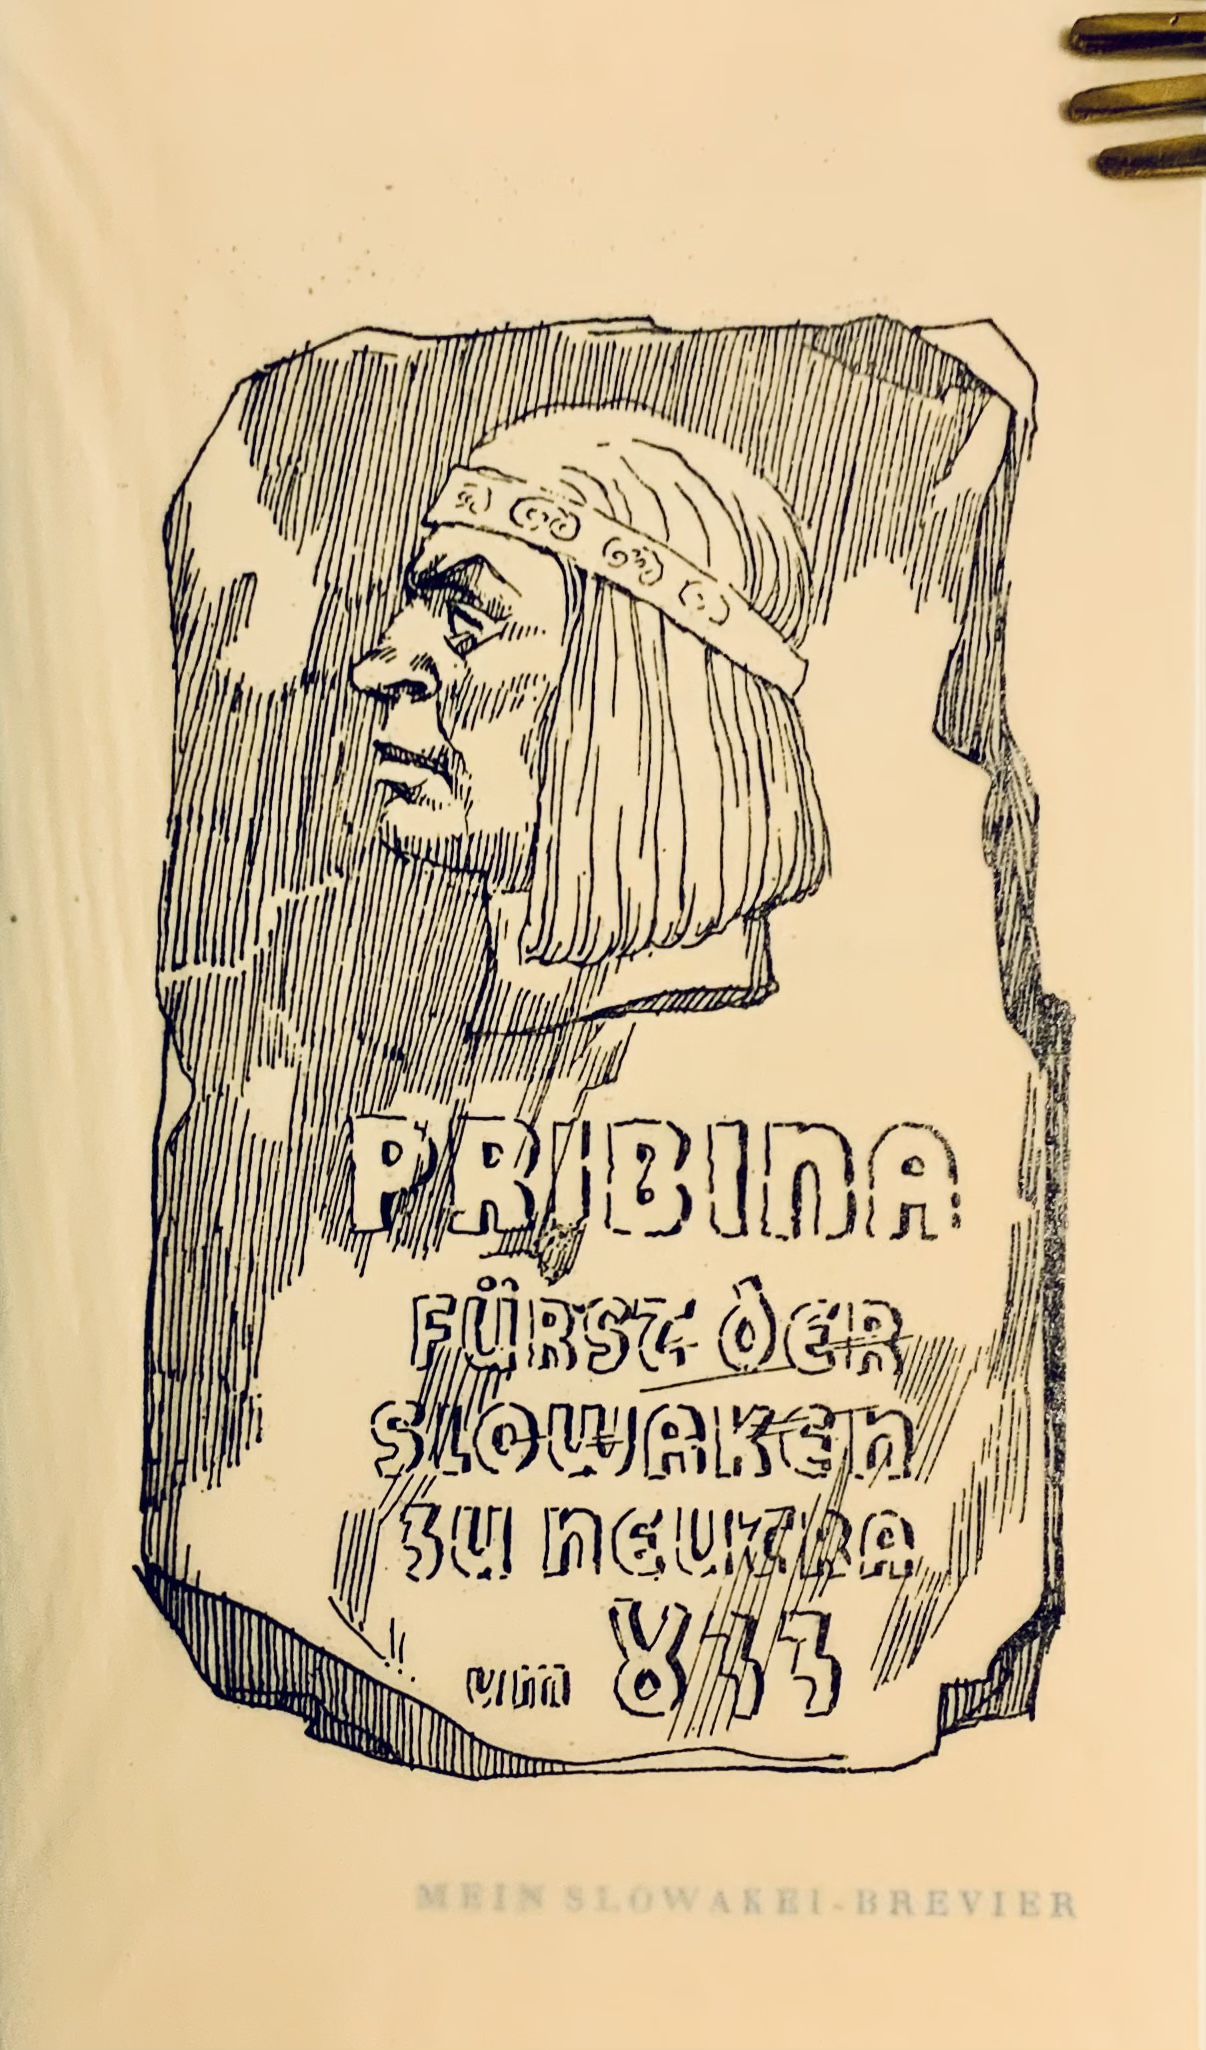 PRIBINA
FÜRST DER
SLOWAKEN
ZU NEUTRA
um 833
MEIN SLOWAKEI-BREVIER